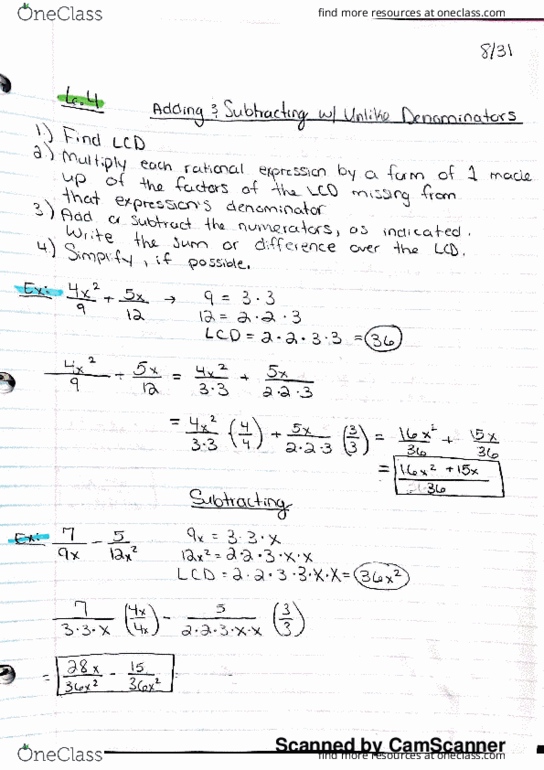 OneClass
find more resources at oneclass.com
8/31
6.4 Adding & Subtracting w/ Unlike Denominators
1.) Find LCD
2.) Multiply each rational expression by a form of 1 made
up of the factors of the LCD missing from
that expression's denominator
3.) Add or subtract the numerators, as indicated.
Write the sum or difference over the LCD.
4.) Simplify, if possible.
Ex: 4x²/9 + 5x/12 → 9 = 3·3
12 = 2·2·3
LCD = 2·2·3·3 = 36
4x²/9 + 5x/12 = 4x²/3·3 + 5x/2·2·3
= 4x²/3·3 (4/4) + 5x/2·2·3 (3/3) = 16x²/36 + 15x/36
= 16x² + 15x/36
Subtracting
Ex: 7/9x - 5/12x² 9x = 3·3·x
12x² = 2·2·3·x·x
LCD = 2·2·3·3·x·x = 36x²
7/3·3·x (4x/4x) - 5/2·2·3·x·x (3/3)
= 28x/36x² - 15/36x²
Scanned by CamScanner
OneClass
find more resources at oneclass.com